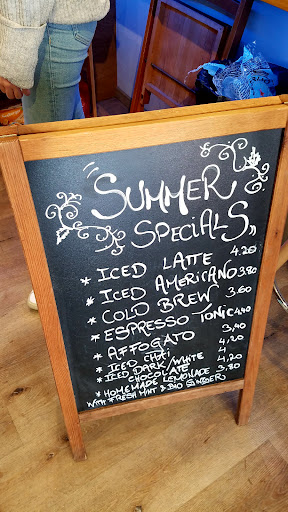 "SUMMER
SPECIALS"
* ICED LATTE 4.20
* ICED AMERICANO 3.80
* COLD BREW 3.60
* ESPRESSO TONIC 4.40
* AFFOGATO 3,40
* ICED CHAI 4,20
* ICED DARK/WHITE 4
CHOCOLATE 4,20
* HOMEMADE LEMONADE 3.80
WITH FRESH MINT & BIO GINGER